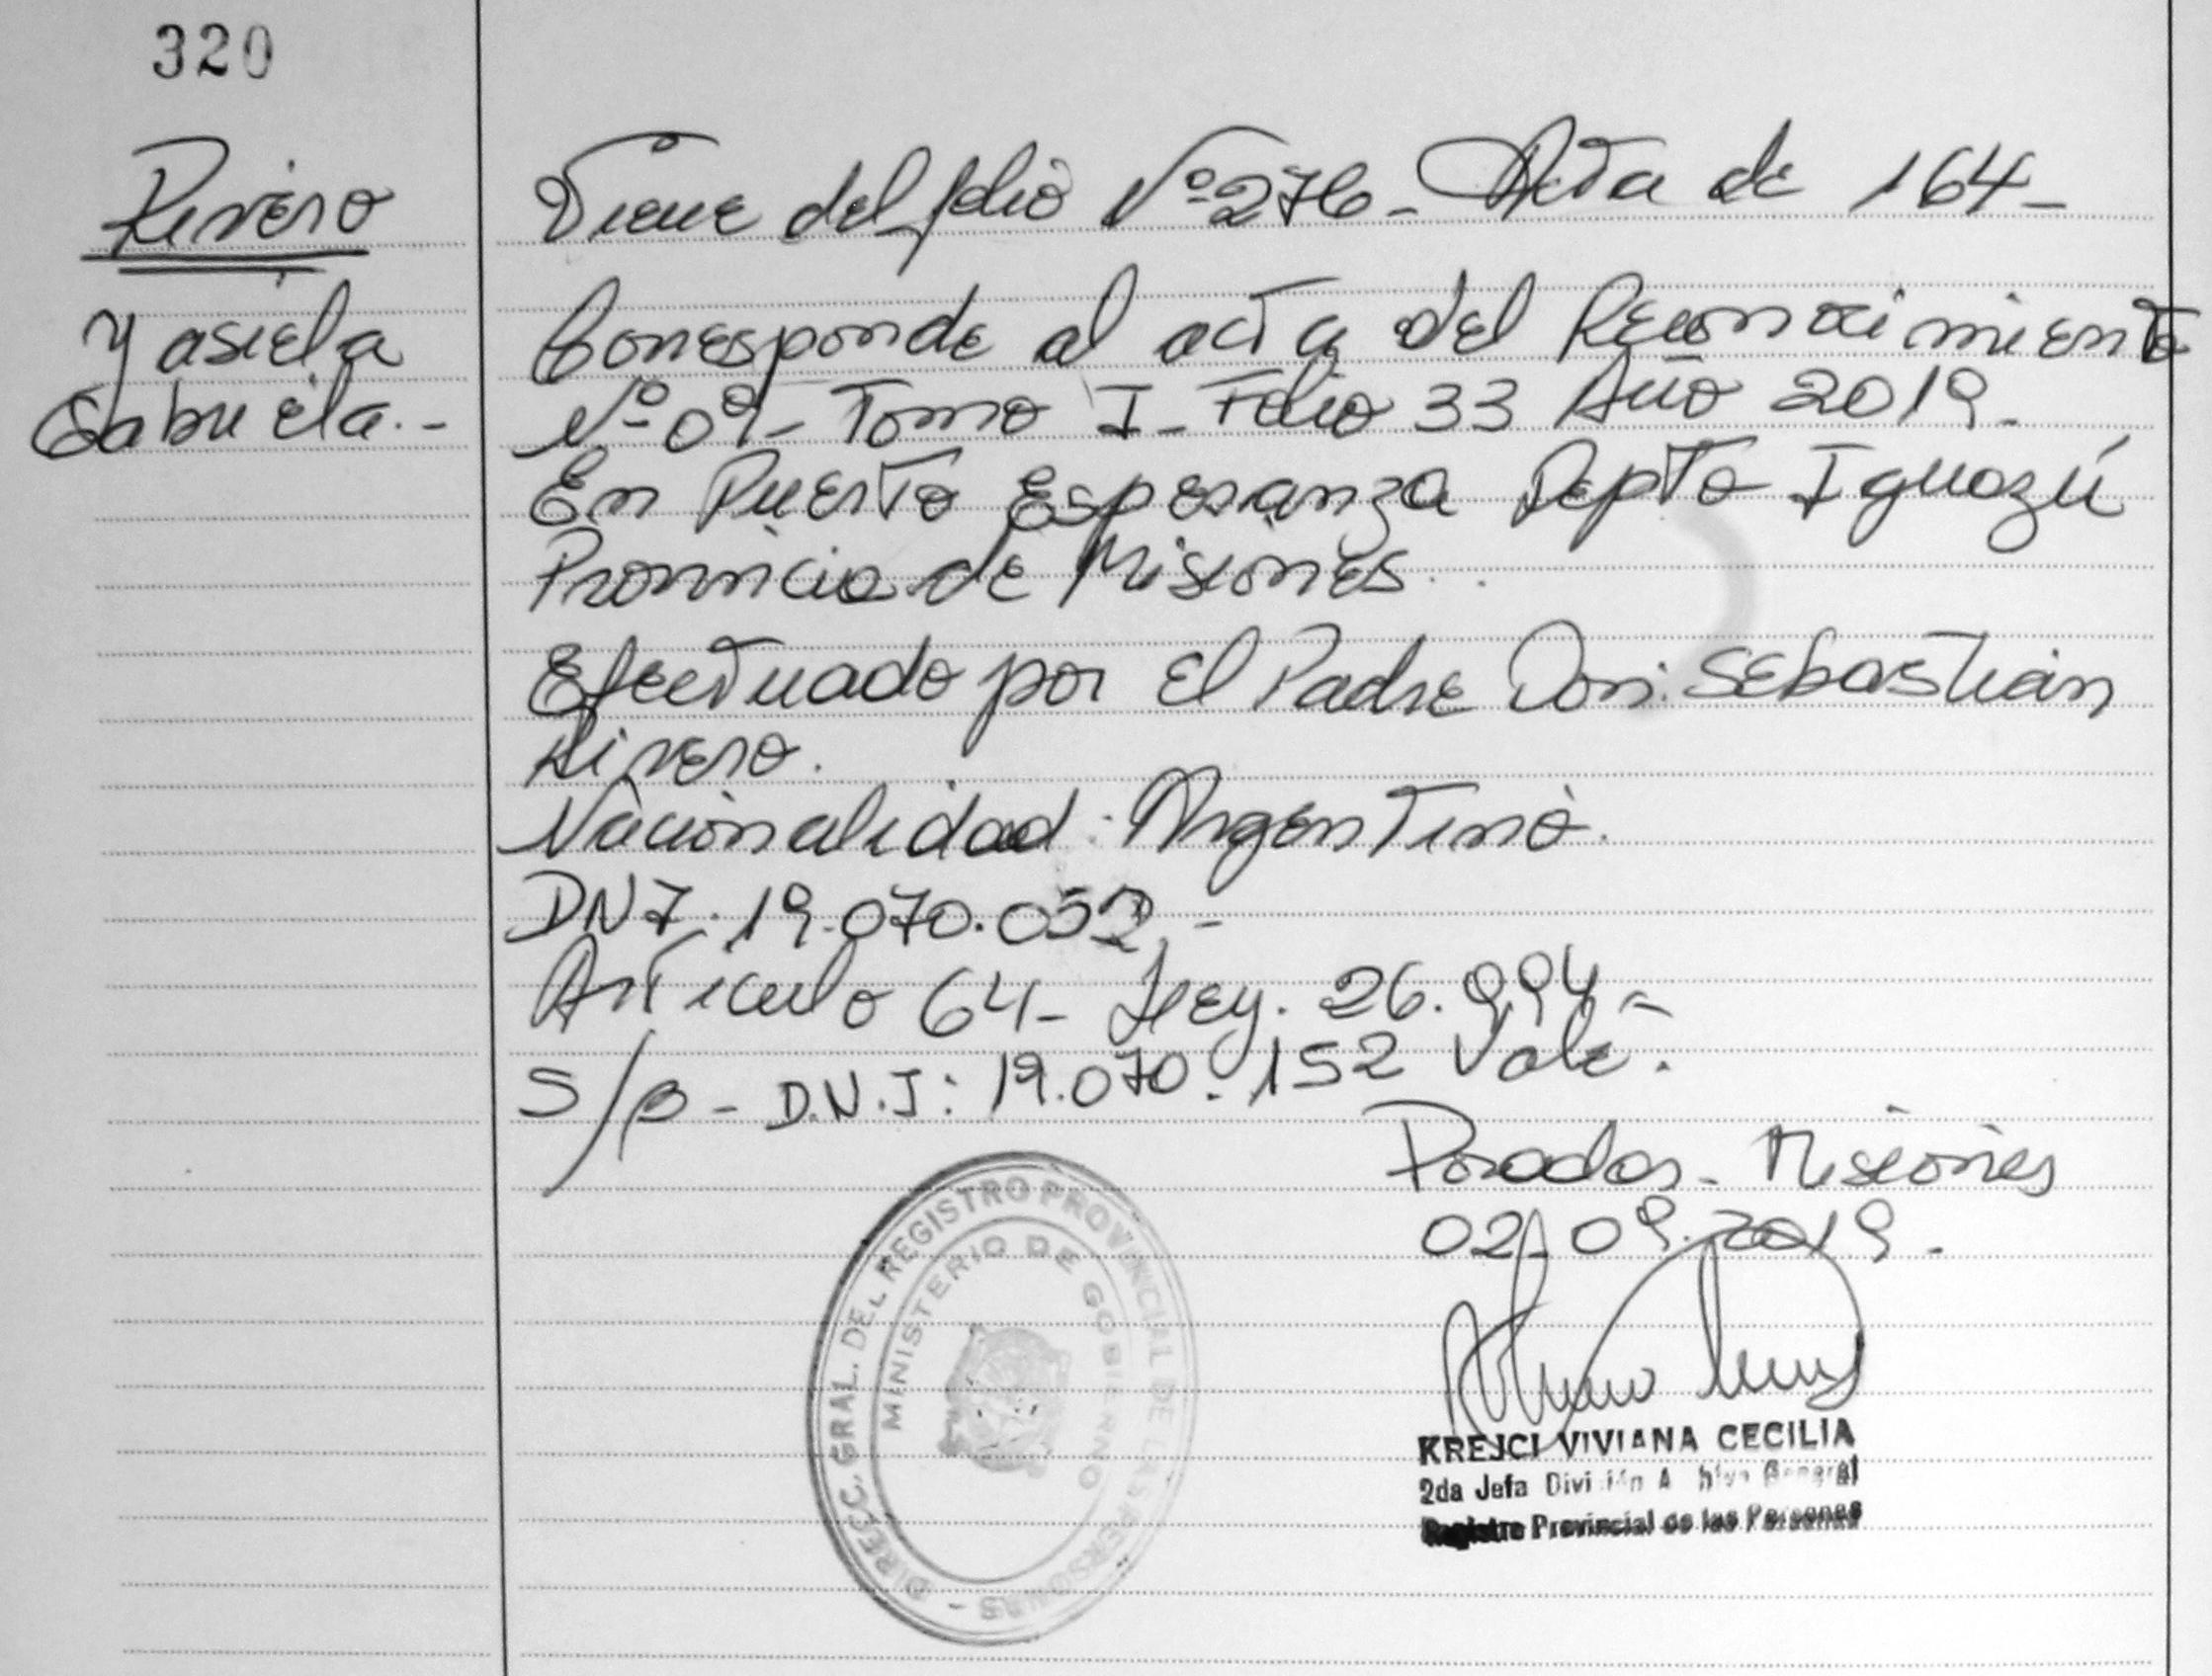 320
Rivero
Yasiela
Gabriela.-
Viene del folio Nº 276- Acta de 164-
Corresponde al acta del Reconocimiento
Nº 09- Tomo I- Folio 33 Año 2019.
En Puerto Esperanza Depto Iguazú
Provincia de Misiones.
Efectuado por El Padre Don: Sebastián
Rivero.
Nacionalidad: Argentino.
DNI. 19.070.052.-
Articulo 64- Ley. 26.994-
S/B- D.N.I: 19.070.152 Vale.
Posadas- Misiones
02-09-2019.
DIRECC. GRAL. DEL REGISTRO PROVINCIAL DE LAS PERSONAS -
MINISTERIO DE GOBIERNO
KREJCI VIVIANA CECILIA
2da Jefa División A hivo General
Registro Provincial de las Personas